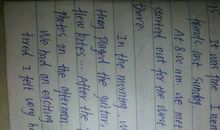 It was fine
friends last Sunday
At 8:00 am we met
started out for the West
there.
In the morning, w
Hong played the guitar
flew kites... After the
games in the afternoon
We had an exciting
tired I felt very h